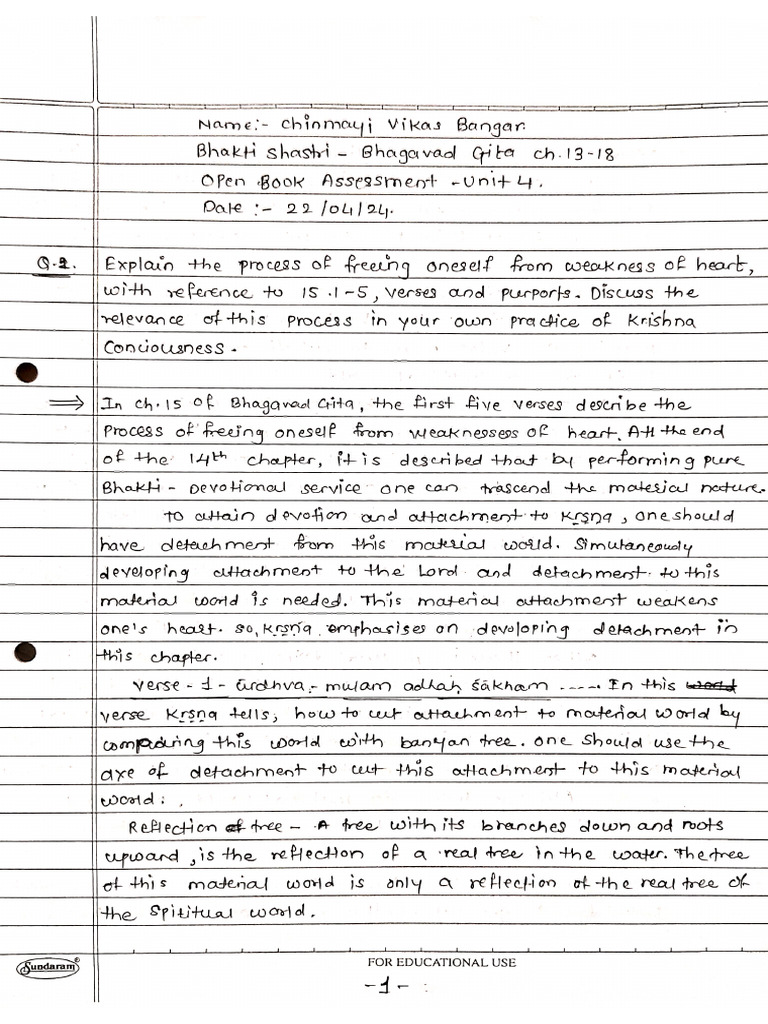 Name:- Chinmayi Vikas Bangar
Bhakti Shastri - Bhagavad Gita ch.13-18
Open Book Assessment -Unit 4.
Date :- 22/04/24.
Q.2. Explain the process of freeing oneself from weakness of heart,
with reference to 15.1-5, verses and purports. Discuss the
relevance of this process in your own practice of Krishna
Conciousness.
⇒ In ch.15 of Bhagavad Gita, the first five verses describe the
process of freeing oneself from weaknesses of heart. At the end
of the 14th chapter, it is described that by performing pure
Bhakti - Devotional service one can trascend the material nature.
To attain devotion and attachment to Kṛṣṇa, one should
have detachment from this material world. Simutaneously
developing attachment to the Lord and detachment to this
material world is needed. This material attachment weakens
one's heart. so, Kṛṣṇa emphasises on devoloping detachment in
this chapter.
Verse - 1 - ūrdhva - mulam adhaḥ śākham ..... In this world
verse Kṛṣṇa tells, how to cut attachment to material world by
comparing this world with banyan tree. one should use the
axe of detachment to cut this attachment to this material
world.
Reflection of tree - A tree with its branches down and roots
upward, is the reflection of a real tree in the water. The tree
of this material world is only a reflection of the real tree of
the Spititual world.
Sundaram®
FOR EDUCATIONAL USE
-1-